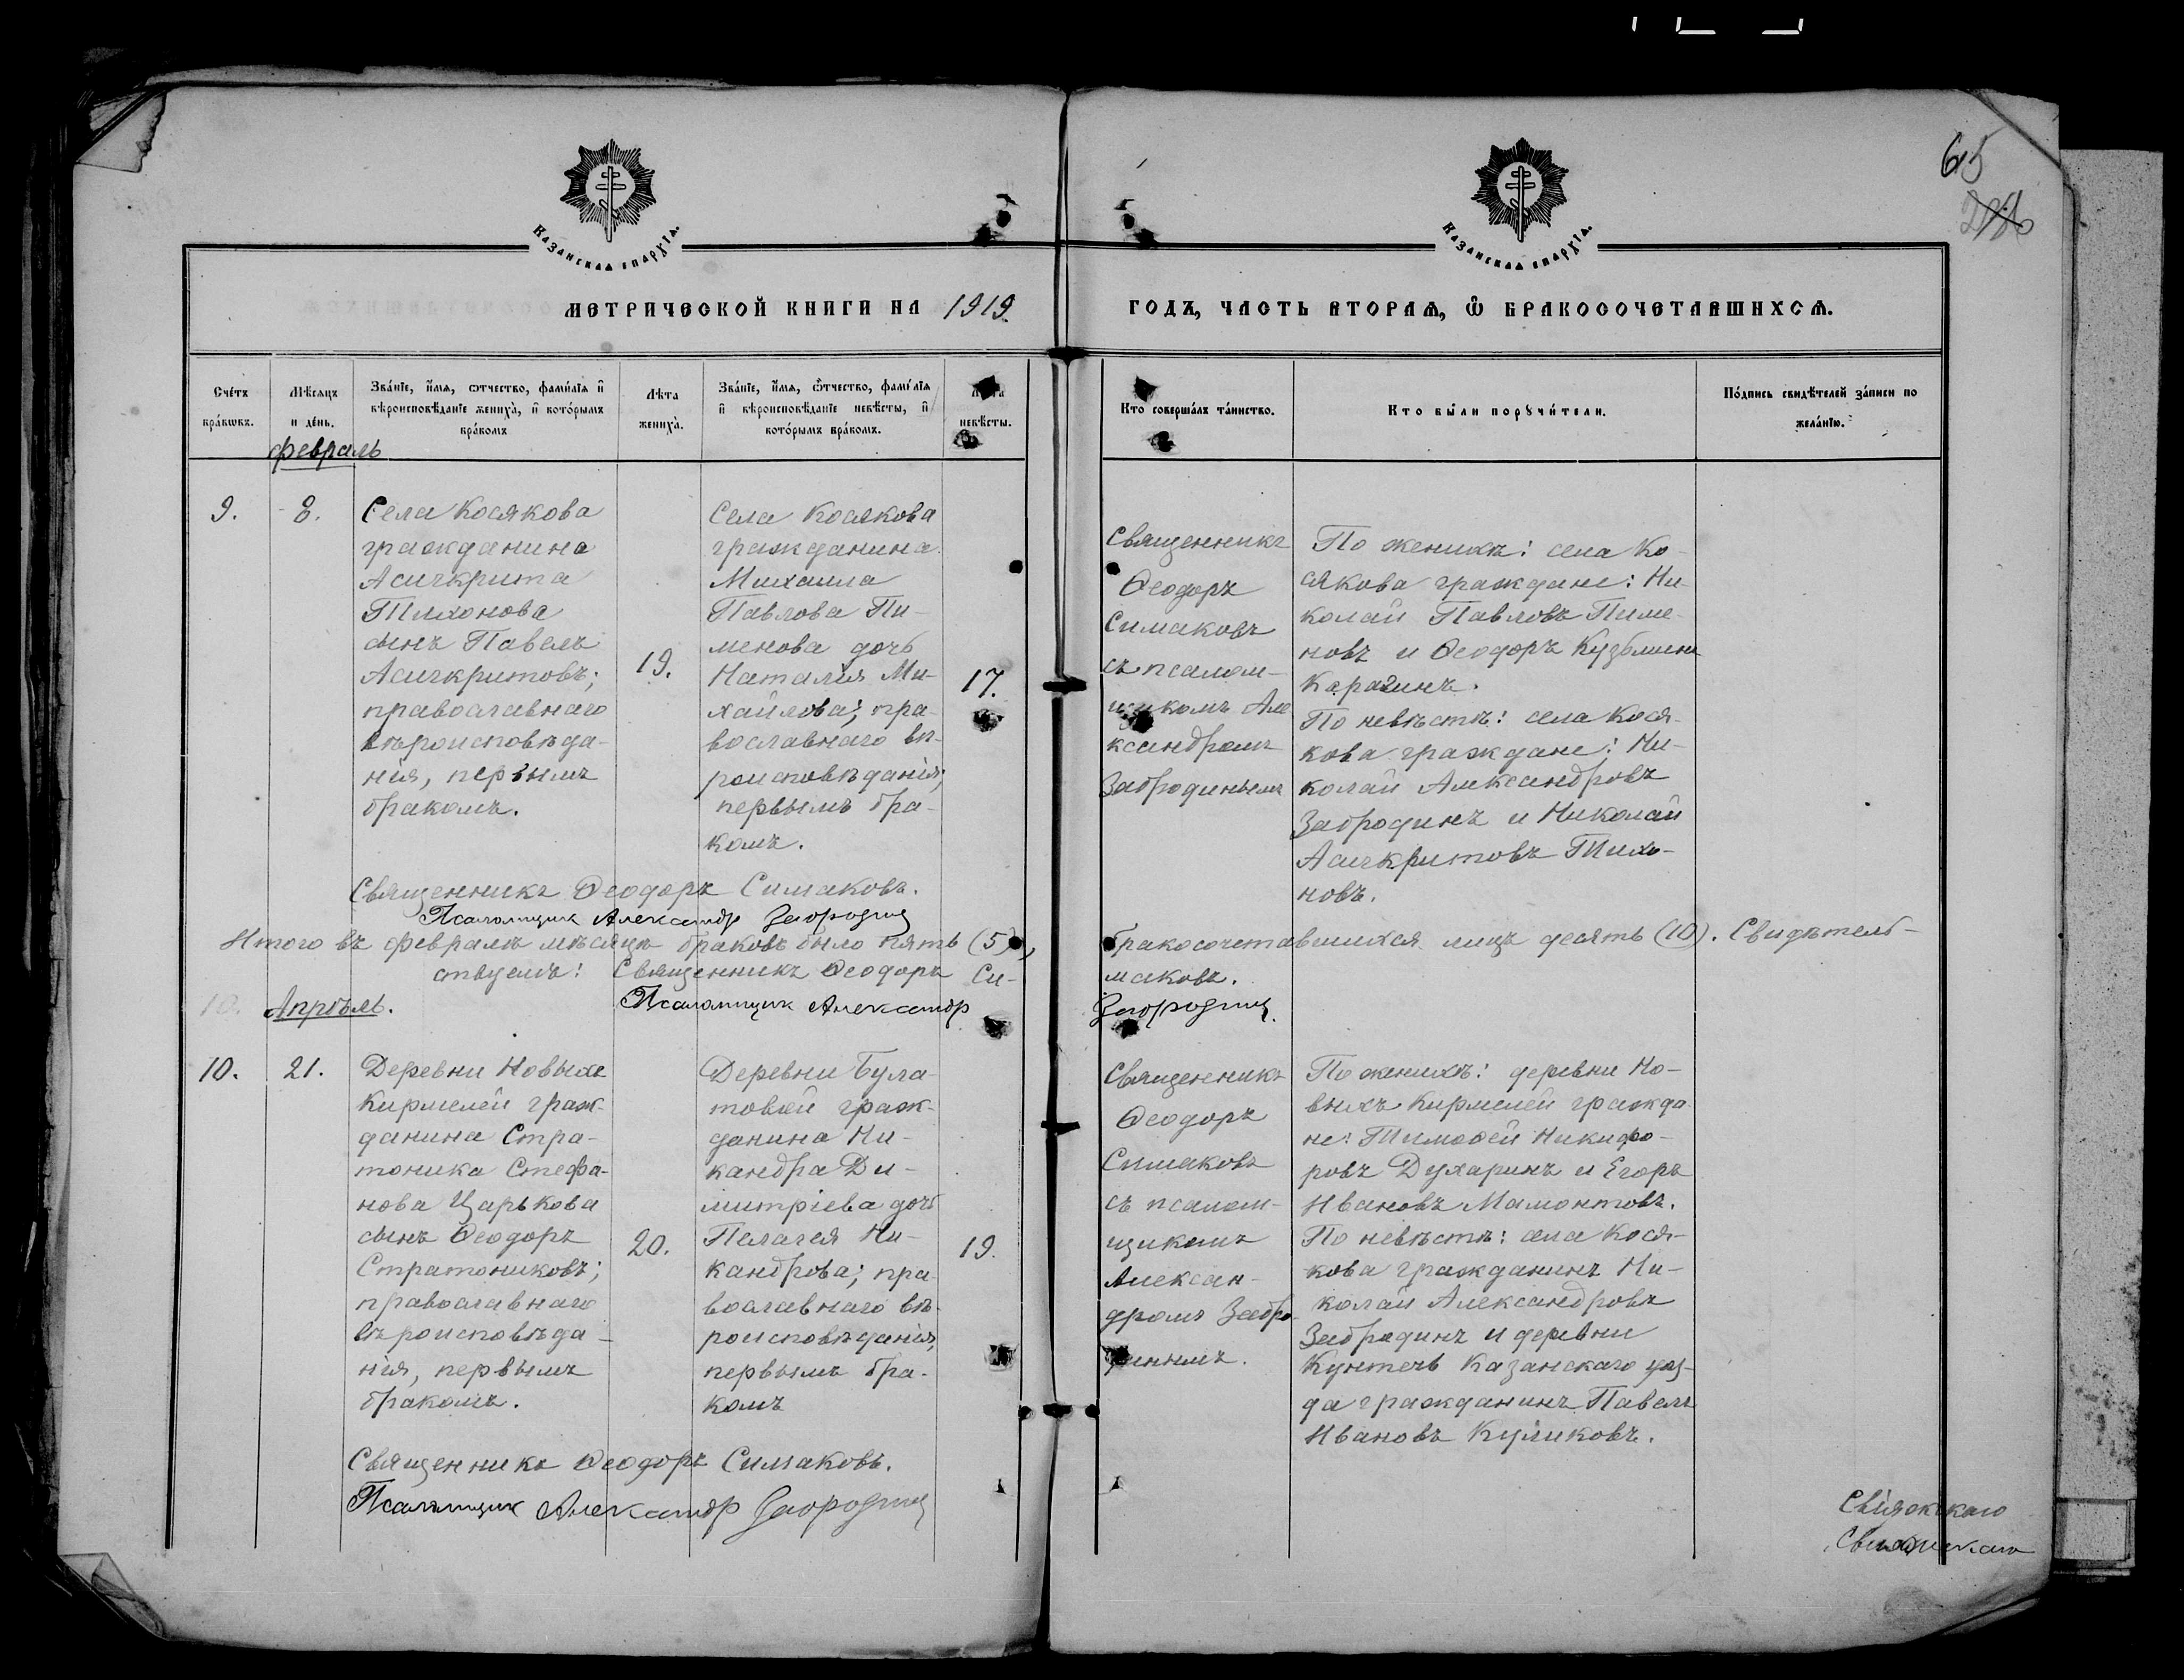 65
Казанская епархія.
Казанская епархія.
МЕТРИЧЕСКОЙ КНИГИ НА 1919
ГОДЪ, ЧАСТЬ ВТОРАЯ, Ѿ БРАКОСОЧЕТАВШИХСЯ.
Счетъ браковъ.
Мѣсяцъ и день.
Званіе, имя, отчество, фамилія и вѣроисповѣданіе жениха, и которымъ бракомъ
Лѣта жениха.
Званіе, имя, отчество, фамилія и вѣроисповѣданіе невѣсты, и которымъ бракомъ.
Лѣта невѣсты.
Кто совершалъ таинство.
Кто были поручители.
Подпись свидѣтелей записи по желанію.
февраль
9.
8.
Села Косякова
гражданина
Асигкрита
Тихонова
сынъ Павелъ
Асигкритовъ;
православнаго
вѣроисповѣда-
нія, первымъ
бракомъ.
19.
Села Косякова
гражданина
Михаила
Павлова Пи-
менова дочь
Наталія Ми-
хайлова; пра-
вославнаго вѣ-
роисповѣданія;
первымъ бра-
комъ.
17.
Священникъ
Ѳеодоръ
Симаковъ
съ псалом-
щикомъ Але
ксандромъ
Забродинымъ
По женихѣ: села Ко-
сякова граждане: Ни-
колай Павловъ Пиме-
новъ и Ѳеодоръ Кузьминъ
Карагинъ.
По невѣстѣ: села Кося-
кова граждане: Ни-
колай Александровъ
Забродинъ и Николай
Асигкритовъ Тихо-
новъ.
Священникъ Ѳеодоръ Симаковъ.
Псаломщик Александр Забродин
Итого въ февралѣ мѣсяцѣ браковъ было пять (5), бракосочетавшихся лицъ десять (10). Свидѣтель-
ствуемъ: Священникъ Ѳеодоръ Симаковъ.
Псаломщик Александр Забродин.
10. Апрѣль.
10.
21.
Деревни Новыхъ
Кирмелей граж-
данина Стра-
тоника Стефа-
нова Царькова
сынъ Ѳеодоръ
Стратониковъ;
православнаго
вѣроисповѣда-
нія, первымъ
бракомъ.
20.
Деревни Була-
товой граж-
данина Ни-
кандра Ди-
митріева дочь
Пелагея Ни-
кандрова; пра-
вославнаго вѣ-
роисповѣданія,
первымъ бра-
комъ
19.
Священникъ
Ѳеодоръ
Симаковъ
съ псалом-
щикомъ
Алексан-
дромъ Забро-
динымъ.
По женихѣ: деревни Но-
выхъ Кирмелей гражда
не: Тимоѳей Никифо-
ровъ Духаринъ и Егоръ
Ивановъ Мамонтовъ.
По невѣстѣ: села Кося-
кова гражданинъ Ни-
колай Александровъ
Забродинъ и деревни
Кунтечь Казанскаго уѣз-
да гражданинъ Павелъ
Ивановъ Куликовъ.
Священникъ Ѳеодоръ Симаковъ.
Псаломщик Александр Забродин
Свіяжскаго